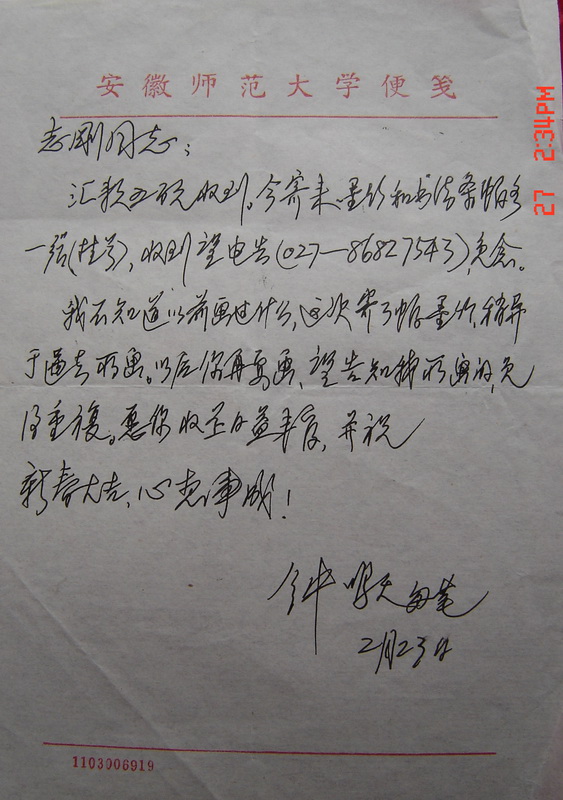 安徽师范大学便笺
志刚同志：
汇款五元收到。今寄来墨竹和书法条幅各
一张(挂号)，收到望电告(027—86827543)，免念。
我不知道以前画过什么，这次寄了幅墨竹，稍异
于过去所画。以后你再要画，望告知我所画的，免
得重复。愿你收至日益丰富，并祝
新春大吉，心想事成！
钟
2月23日
1103006919
27 2:34PM